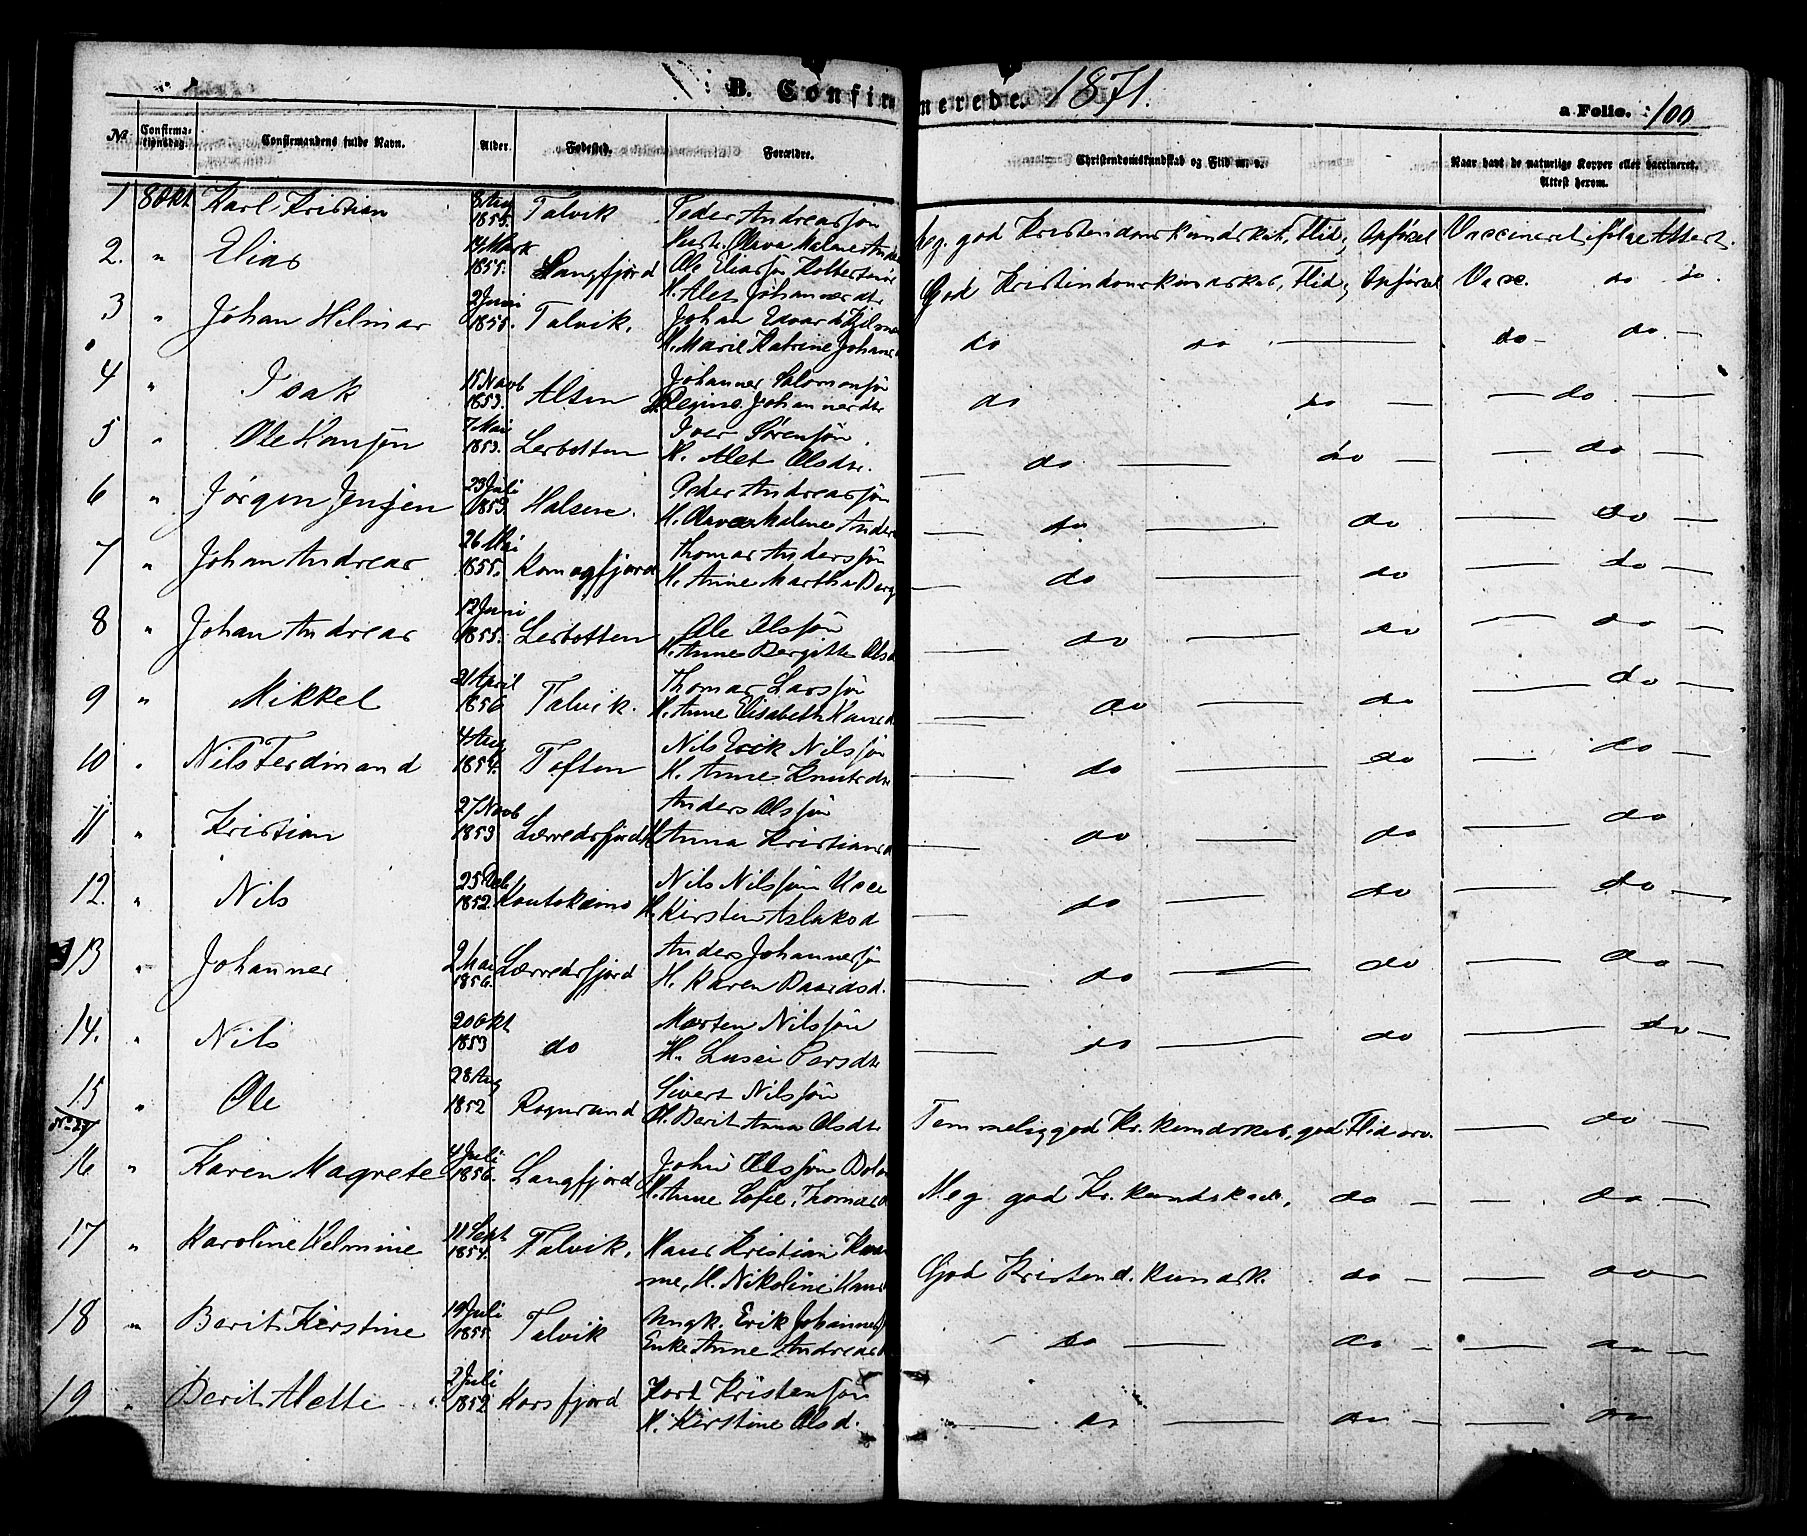 B. Confirmerede. 1871.
a Folio. 100
No. Confirmationsdag. Confirmandens fulde Navn. Alder. Fødested. Forældre. Christendomskundskab og Flid m. v. Naar havt de naturlige Kopper eller vaccineret. Attest herom.
1 8 Okt. Karl Kristian 8 Aug 1855. Talvik Peder Andreassøn
Hustr. Olava Malene Ander Meg. god Kristendomskundskab, Flid, Opførsel Vaccineret ifølge Attest.
2. " Elias 14 Mark 1855. Langfjord Ole Eliassøn
H. Alet Johannesdtr God Kristendomskundskab, Flid, Opførsel Vacc. do do
3 " Johan Hilmar 2 Juni 1855. Talvik. Johan Edvard
H. Marie Katrine Johans do do — do — do —
4 " Isak 15 Novb 1853. Alten Johannes Salomonsøn
H. Regine Johannesdtr do do — — do —
5 " Ole Hansøn 7 Mai 1853. Lerbotten Iver Sørensøn
H. Alet Olsdtr. — do — do — — do —
6 " Jørgen Jensen 23 Juli 1853 Halsene. Peder Andreassøn
H. Olava Malene Anders — do — do — do —
7 " Johan Andreas 26 Mai 1855. Komagfjord Thomas Anderssøn
H. Anne Martha Berg — do — do — do —
8 " Johan Andreas 12 Juni 1855. Lerbotten Ole Olssøn
H. Anne Bergitte Olsd — do — do — do —
9 " Mikkel 21 April 1856 Talvik. Thomas Larssøn
H. Anne Elisabeth Hansd — do — do — do —
10 " Nils Ferdinand 4 Aug 1854. Toften Nils Erik Nilssøn
H. Anne Knutsdtr — do — do — do —
11 " Kristian 27 Novb 1853 Lærredsfjord Anders Olssøn
H. Anna Kristiansd — do — do — do
12. " Nils 25 Deb 1852. Koutokeino Nils Nilssøn
H. Kirsten Aslaksd — do — do — do —
13 " Johannes 2 Mai 1856. Lærredsfjord Anders Johannessøn
H. Karen Baardsd. — do — do — do —
14. " Nils 20 Okt 1853 do Morten Nilssøn
H. Lusei Persdtr — do — do — do —
15 " Ole 28 Aug 1852 Rognsund Sivert Nilssøn
H. Berit Anna Olsdtr Temmelig god Kr. kundskab, god Flid osv. — do —
16 " Karen Magrete 4 Juli 1856. Langfjord John Olssøn
H. Anne Sofie Thomasd Meg god Kr. kundskab, do — — do —
17 " Karoline Helmine 11 Sept 1854. Talvik. Hans Kristian
H. Nikoline Hans God Kristend. kundsk. do — — do —
18 " Berit Kirstine 19 Juli 1855. Talvik Ungk. Erik Johannes
Enke Anne Andreasd — do — do — — do —
19 " Berit Alette 2 Juli 1852 Korsfjord Kristensøn
H. Kirstine Olsd. — do — do — — do